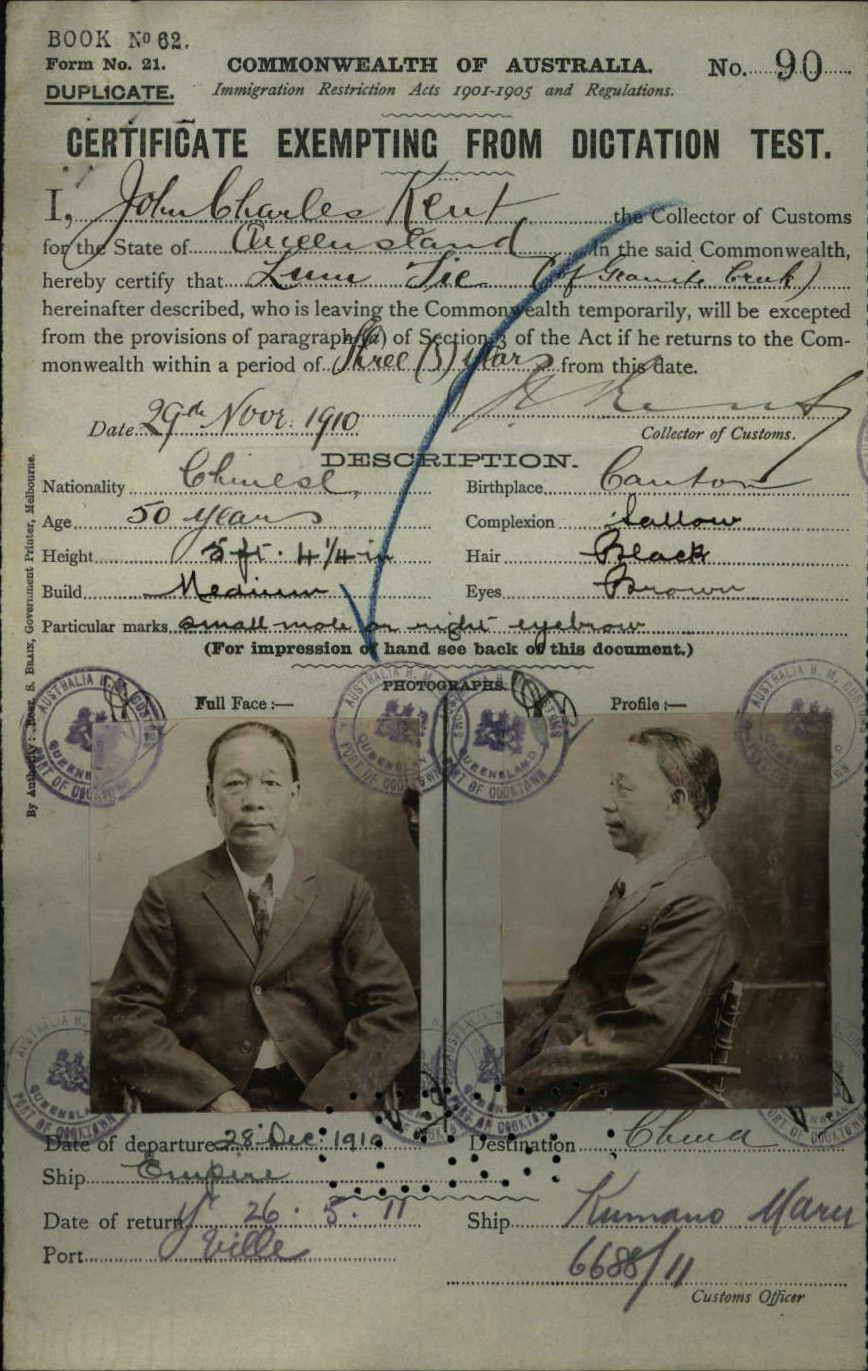 BOOK No 62.
Form No. 21.
COMMONWEALTH OF AUSTRALIA.
No. 90
DUPLICATE.
Immigration Restriction Acts 1901-1905 and Regulations.
CERTIFICATE EXEMPTING FROM DICTATION TEST.
I, John Charles Kent the Collector of Customs
for the State of Queensland in the said Commonwealth,
hereby certify that Lum Tie (of Granite Creek)
hereinafter described, who is leaving the Commonwealth temporarily, will be excepted
from the provisions of paragraph (a) of Section 3 of the Act if he returns to the Com-
monwealth within a period of Three (3) years from this date.
Date 29th Novr. 1910
Collector of Customs.
DESCRIPTION.
Nationality Chinese Birthplace Canton
Age 50 years Complexion Sallow
Height 5 ft. 4 1/4 in Hair Black
Build Medium Eyes Brown
Particular marks small mole on right eyebrow
(For impression of hand see back of this document.)
PHOTOGRAPHS.
Full Face :— Profile :—
AUSTRALIA H. M. CUSTOMS
QUEENSLAND
PORT OF COOKTOWN
Date of departure 28 Dec: 1910 Destination China
Ship Empire
Date of return 26.5.11 Ship Kumano Maru
Port T'ville
6688/11
Customs Officer
By Authority: S. BRAIN, Government Printer, Melbourne.